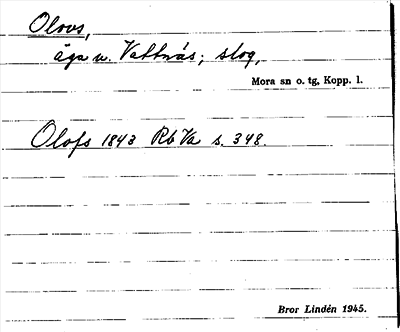 Olovs,
äga u. Vattnäs; skog,
Mora sn o. tg, Kopp. l.
Olofs 1843 Rb Va s. 348.
Bror Lindén 1945.